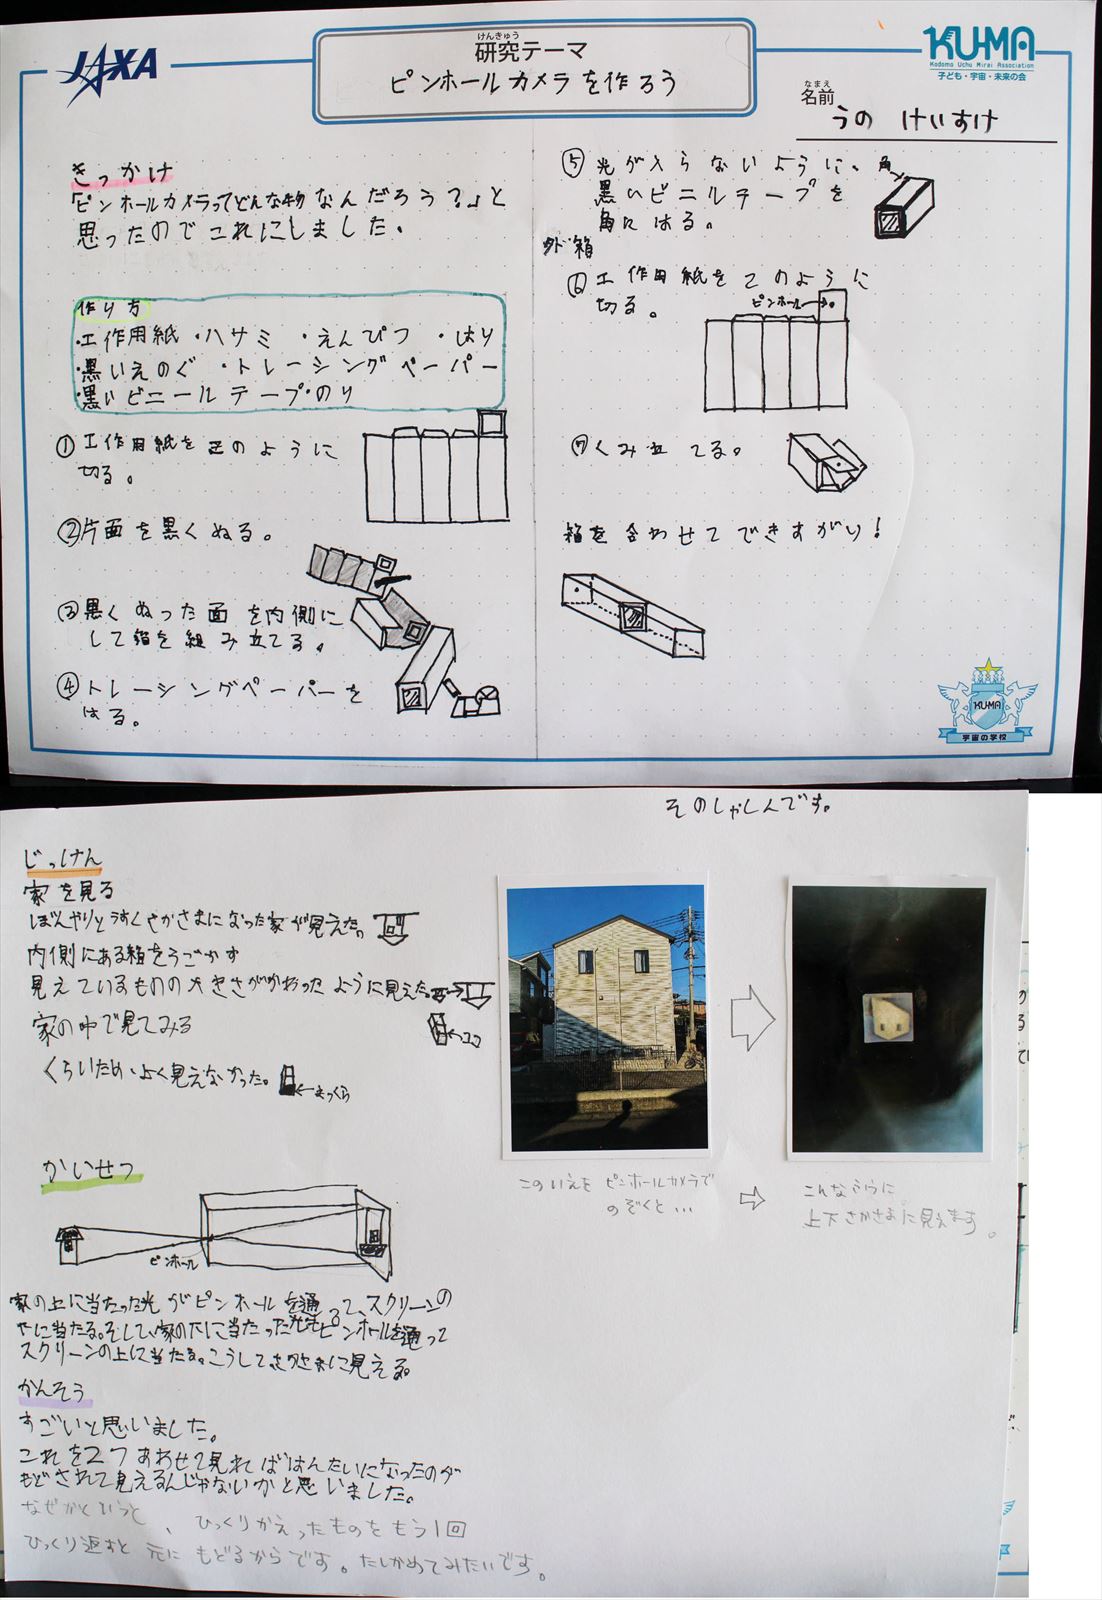 JAXA
けんきゅう
研究テーマ
ピンホールカメラを作ろう
KUMA
Kodomo Uchu Mirai Association
子ども・宇宙・未来の会
なまえ
名前
うの けいすけ
きっかけ
「ピンホールカメラってどんな物なんだろう?」と
思ったのでこれにしました。
作り方
・工作用紙 ・ハサミ ・えんぴつ ・はり
・黒いえのぐ ・トレーシングペーパー
・黒いビニールテープ・のり
①工作用紙をこのように
切る。
②片面を黒くぬる。
③黒くぬった面を内側に
して箱を組み立てる。
④トレーシングペーパーを
はる。
⑤光が入らないように。
黒いビニルテープを
角にはる。
角
外箱
⑥工作用紙をこのように
切る。
ピンホール
⑦くみ立てる。
箱を合わせてできすがり!
KUMA
宇宙の学校
そのしゃしんです。
じっけん
家を見る
ぼんやりとうすくさかさまになった家が見えた。
内側にある箱をうごかす
見えているものの大きさがかわったように見えた。
家の中で見てみる
←ココ
くらいため、よく見えなかった。
←まっくら
このいえを ピンホールカメラで
のぞくと…
こんなふうに
上下さかさまに見えます。
かいせつ
ピンホール
家の上に当たった光がピンホールを通って、スクリーンの
下に当たる。そして、家の下に当たった光もピンホールを通って
スクリーンの上に当たる。こうしてさかさまに見える。
かんそう
すごいと思いました。
これを2つあわせて見ればはんたいになったのが
もどされて見えるんじゃないかと思いました。
なぜかというと、ひっくりかえったものをもう1回
ひっくり返すと元にもどるからです。たしかめてみたいです。